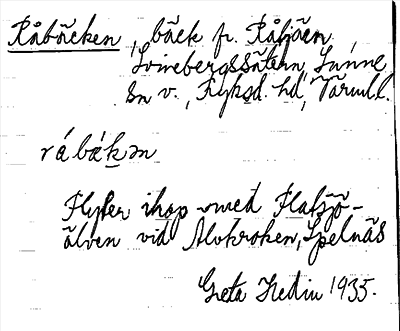 Råbäcken, bäck fr. Råsjön
Svinebergssätern, Sunne
sn v., Fryksd. hd, Värml.
rábákən
Flyter ihop med Flatsjö-
älven vid Alvkroken, Spelnäs
Greta Hedin 1935.